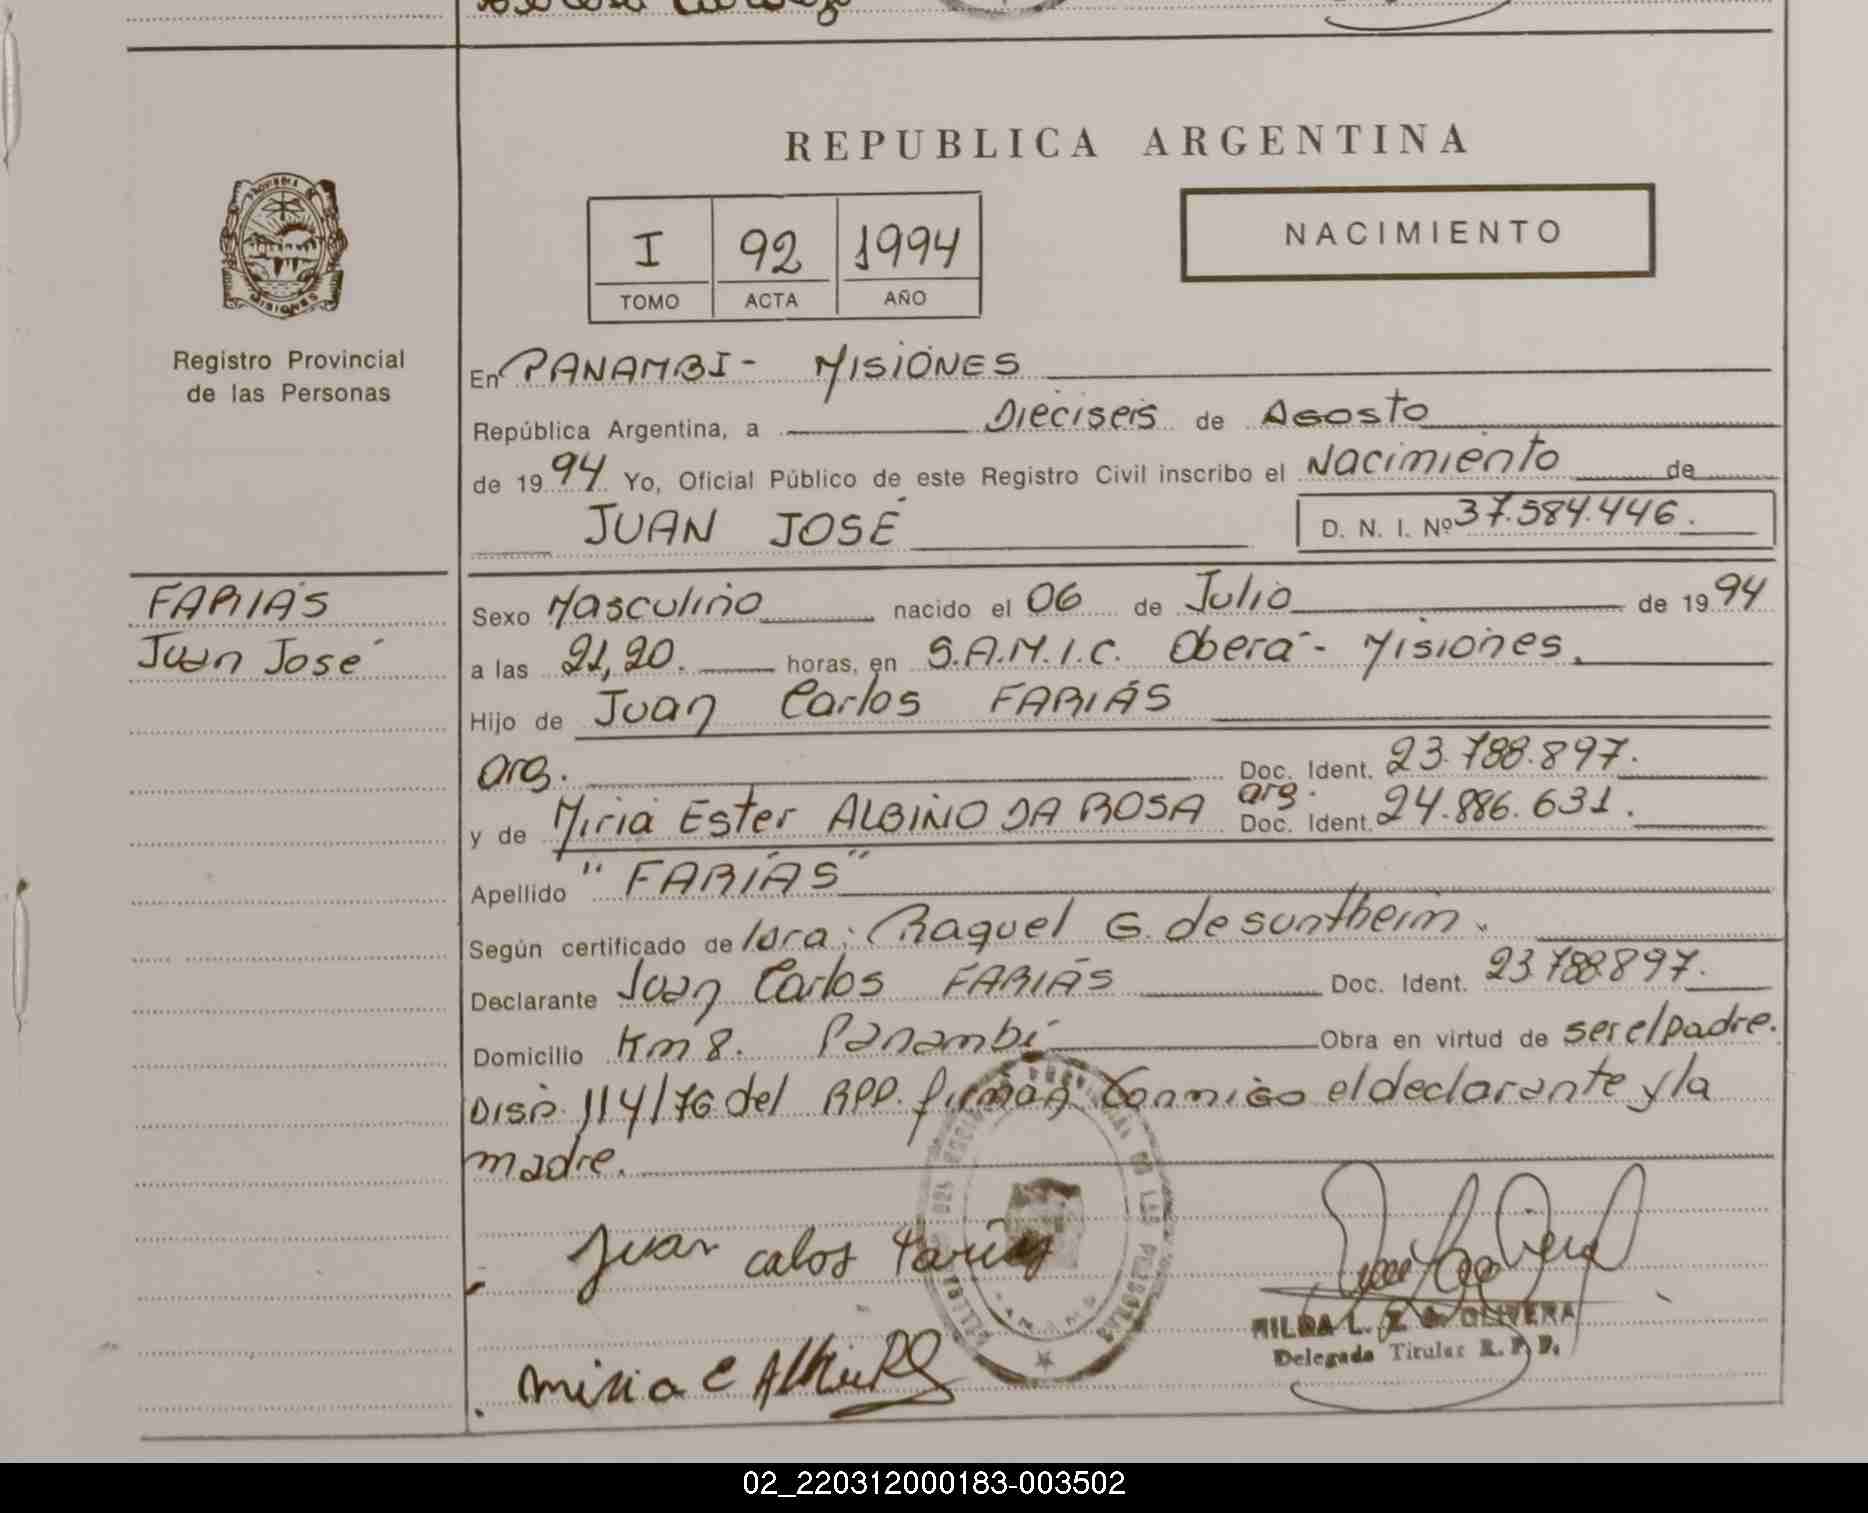 REPUBLICA ARGENTINA
I 92 1994
TOMO ACTA AÑO
NACIMIENTO
MISIONES
Registro Provincial
de las Personas
En PANAMBI - MISIONES
República Argentina, a Dieciseis de Agosto
de 1994 Yo, Oficial Público de este Registro Civil inscribo el Nacimiento de
JUAN JOSÉ D. N. I. Nº 37.584.446.
FARIAS
Juan José
Sexo Masculino nacido el 06 de Julio de 1994
a las 21,20. horas, en S.A.M.I.C. Oberá - Misiones.
Hijo de Juan Carlos FARIÁS
arg. Doc. Ident. 23.788.897.
y de Miria Ester ALBINO DA ROSA arg. Doc. Ident. 24.886.631.
Apellido "FARIAS"
Según certificado de Raquel G. de suntheim.
Declarante Juan Carlos FARIÁS Doc. Ident. 23.788.897.
Domicilio Km 8. Panambí Obra en virtud de ser el padre.
Disp. 114/76 del RPP. firman conmigo el declarante y la
madre.
Juan calos Farias
PROVINCIAL DE LAS PERSONAS
HILDA L. Z. OLIVERA
Delegada Titular R. P. P.
Miria E
02_220312000183-003502